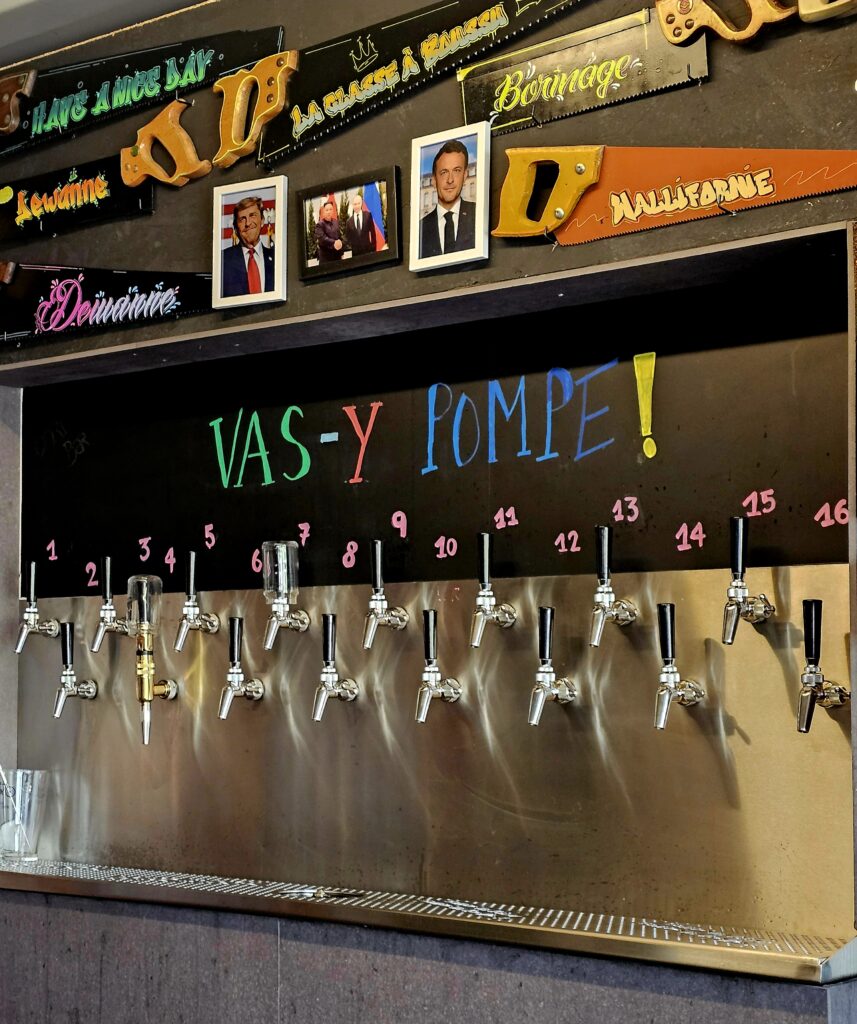 HAVE A NICE DAY
LA CLASSE À BOUSSU
Borinage
Jewanne
WALLIFORNIE
Demanne
VAS-Y POMPE!
1 2 3 4 5 6 7 8 9 10 11 12 13 14 15 16